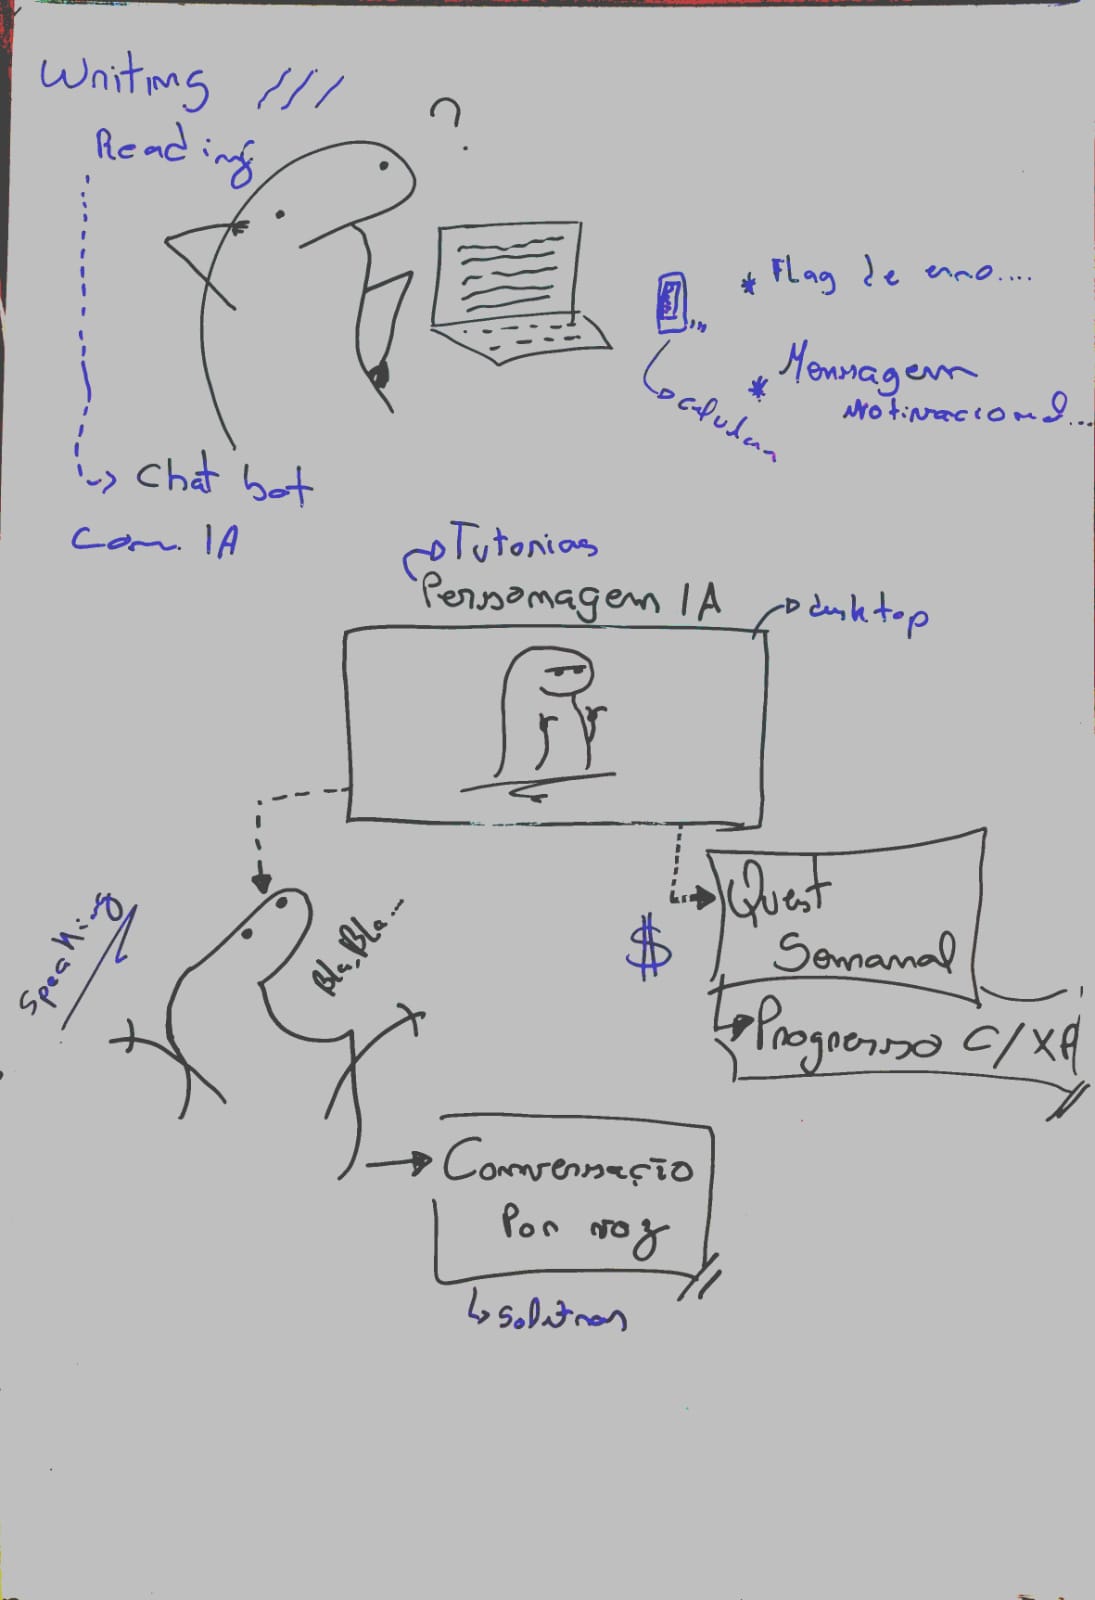 Writing
?
Reading
* Flag de erro....
* Mensagem
motivacional...
celular
Chat bot
com IA
Tutorias
Personagem IA
desktop
Speaking
Bla, Bla...
$
Quest
Semanal
Progresso C/XP
Conversação
Por voz